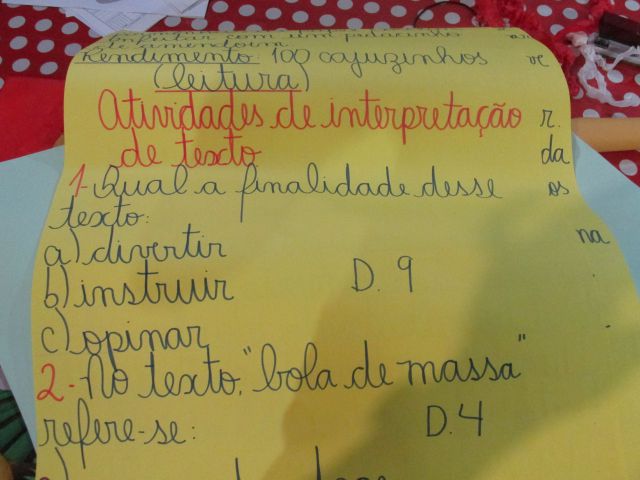 com um pedacinho
de amendoim
Rendimento: 100 cajuzinhos
(leitura)
Atividades de interpretação
de texto
1- Qual a finalidade desse
texto:
a) divertir
b) instruir D. 9
c) opinar
2- No texto, "bola de massa"
refere-se: D.4
r.
da
os
na